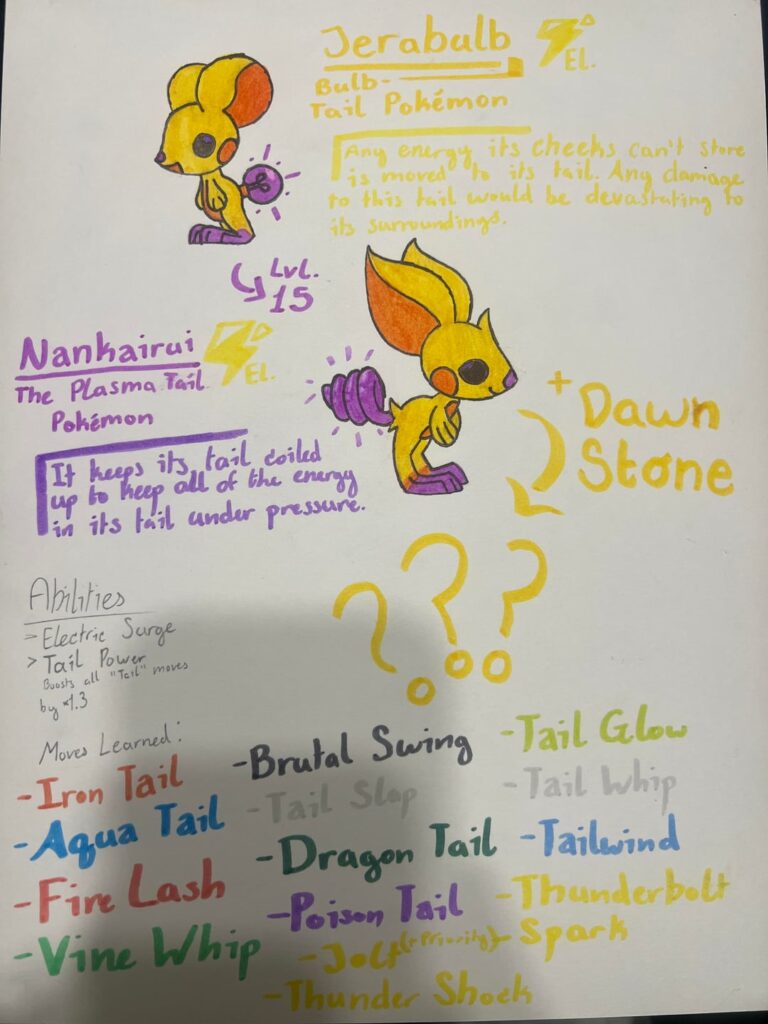 Jerabulb
EL.
Bulb-
Tail Pokémon
Any energy its cheeks can't store
is moved to its tail. Any damage
to this tail would be devastating to
its surroundings.
Lvl.
15
Nankairui
EL.
The Plasma Tail
Pokémon
It keeps its tail coiled
up to keep all of the energy
in its tail under pressure.
+ Dawn
Stone
???
Abilities
> Electric Surge
> Tail Power
Boosts all "Tail" moves
by *1.3
Moves Learned:
- Iron Tail
- Aqua Tail
- Fire Lash
- Vine Whip
- Brutal Swing
- Tail Slap
- Dragon Tail
- Poison Tail
- Jolt (+Priority)
- Thunder Shock
- Tail Glow
- Tail Whip
- Tailwind
- Thunderbolt
- Spark